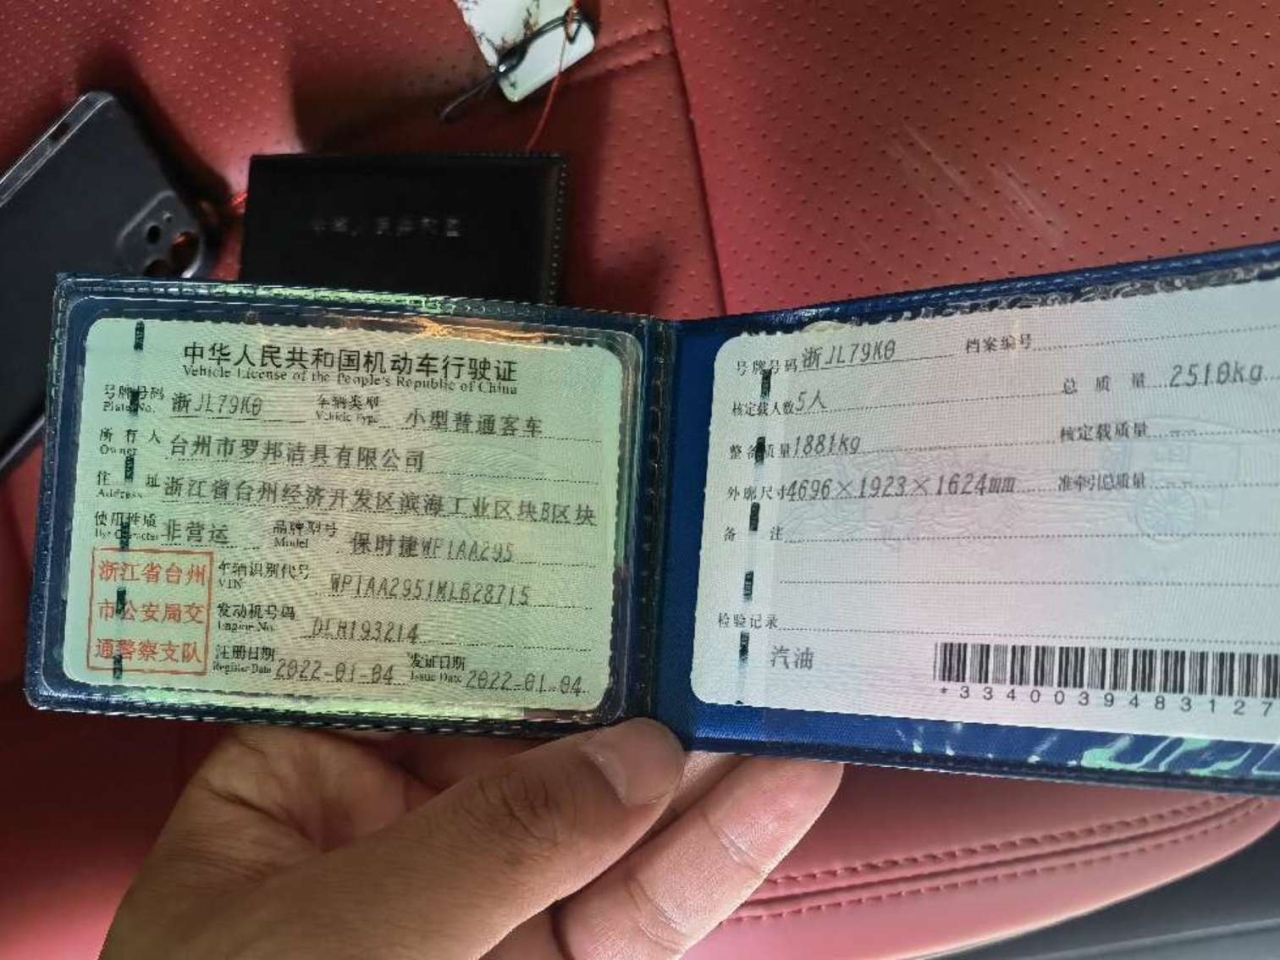 中华人民共和国机动车行驶证
Vehicle License of the People's Republic of China
号牌号码 浙JL79K0 车辆类型 小型普通客车
Plate No. Vehicle Type
所有人 台州市罗邦洁具有限公司
Owner
住址 浙江省台州经济开发区滨海工业区块B区块
Address
使用性质 非营运 品牌型号 保时捷WP1AA295
Use Character Model
浙江省台州
市公安局交
通警察支队
车辆识别代号 WP1AA2951MLB28715
VIN
发动机号码 DLH193214
Engine No.
注册日期 2022-01-04 发证日期 2022-01-04
Register Date Issue Date
号牌号码 浙JL79K0 档案编号
核定载人数 5人 总质量 2510kg
整备质量 1881kg 核定载质量
外廓尺寸 4696×1923×1624mm 准牵引总质量
备注
检验记录
汽油
*3340039483127